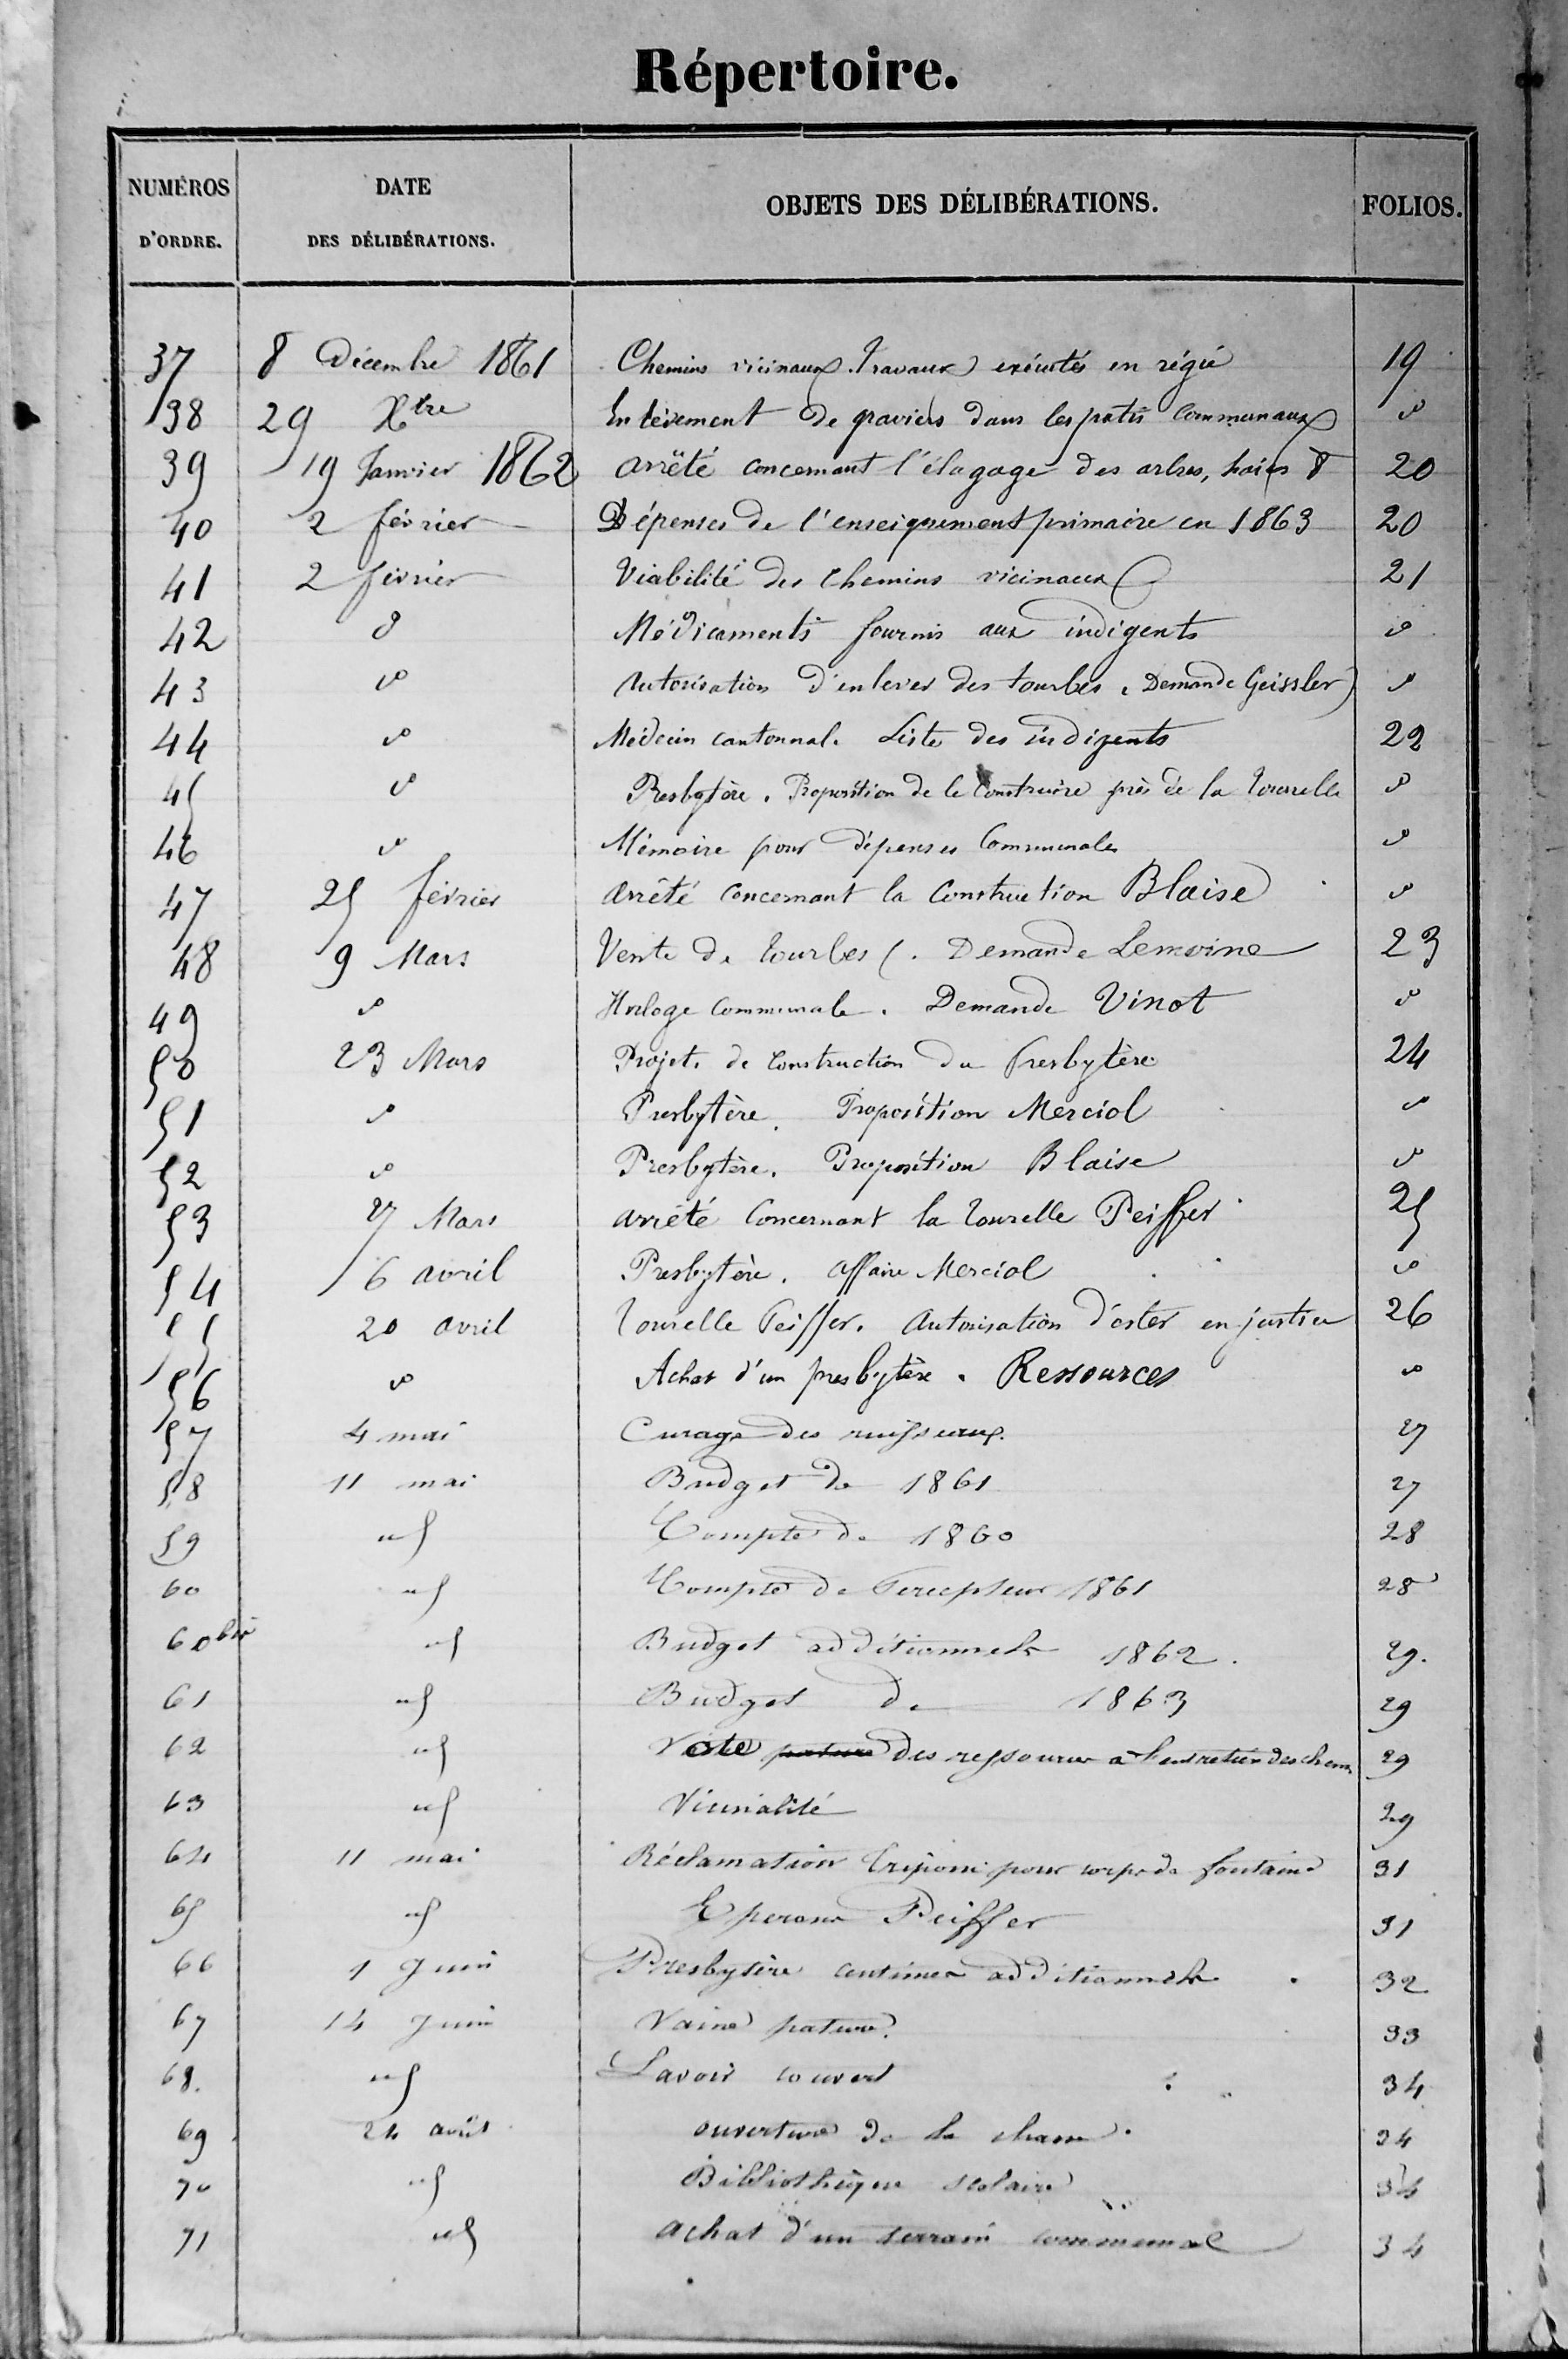 Répertoire.
NUMÉROS D'ORDRE. DATE DES DÉLIBÉRATIONS. OBJETS DES DÉLIBÉRATIONS. FOLIOS.
37 8 Décembre 1861 Chemins vicinaux. Travaux exécutés en régie 19
38 29 Xbre Enlèvement de graviers dans les patis Communaux do
39 19 Janvier 1862 arrêté concernant l'élagage des arbres, haies & 20
40 2 février Dépenses de l'enseignement primaire en 1863 20
41 2 février Viabilité des Chemins vicinaux 21
42 do Médicaments fournis aux indigents do
43 do Autorisation d'enlever des tourbes. Demande Geissler) do
44 do Médecin cantonnal. Liste des indigents 22
45 do Presbytère. Proposition de le Construire près de la Tourelle do
46 do Mémoire pour dépenses Communales do
47 25 février arrêté concernant la Construction Blaise do
48 9 Mars Vente de tourbes (. Demande Lemoine 23
49 do Horloge Communale. Demande Vinot do
50 23 Mars Projet de Construction du Presbytère 24
51 do Presbytère. Proposition Merciol do
52 do Presbytère. Proposition Blaise do
53 27 Mars arrêté Concernant la Tourelle Peiffer 25
54 6 avril Presbytère. affaire Merciol do
55 20 avril Tourelle Peiffer. Autorisation d'ester en justice 26
56 do Achat d'un presbytère. Ressources do
57 4 mai Curage des ruisseaux. 27
58 11 mai Budget de 1861 27
59 Compte de 1860 28
60 Compte de Percepteur 1861 28
60 bis Budget additionnels 1862. 29.
61 Budget de 1863 29
62 Vote des ressources à l'entretien des chem 29
63 Vicinalité 29
64 11 mai Réclamation pour corps de fontaine 31
65 Eperons Peiffer 31
66 1 Juin Presbytère centimes additionnels 32
67 14 Juin Vaine pature. 33
68. Lavoir couvert 34
69 24 août ouverture de la chasse. 34
70 Bibliothèque scolaire 34
71 achat d'un terrain communal 34